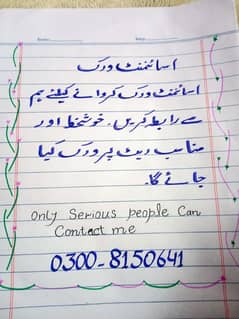 اسائمنٹ ورک
اسائمنٹ ورک کروانے کیلئے ہم
سے رابطہ کریں۔ خوشخط اور
مناسب ریٹ پر ورک کیا
جائے گا۔
only Serious people Can
Contact me
0300-8150641